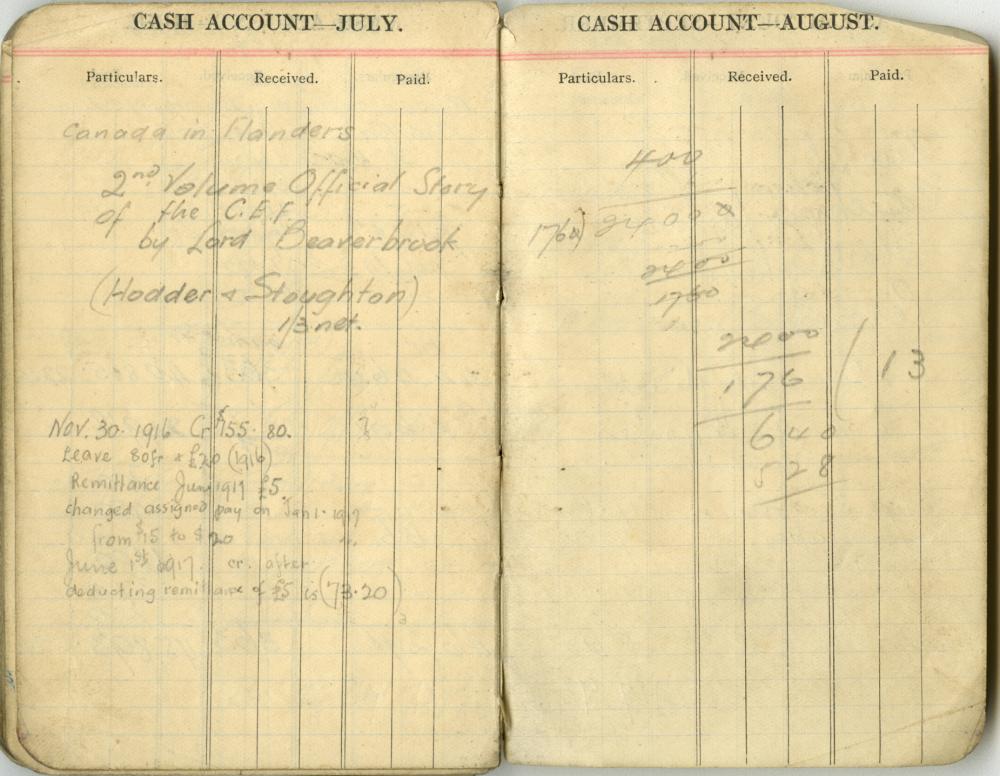 CASH ACCOUNT—JULY.
Particulars. Received. Paid.
Canada in Flanders
2nd Volume Official Story
of the C.E.F.
by Lord Beaverbrook
(Hodder & Stoughton)
1/3 net.
Nov. 30. 1916 Cr $155.80.
Leave 80fr & £20 (1916)
Remittance June 1917 £5
changed assigned pay on Jan 1. 1917
from $15 to $20
June 1st 1917. cr. after
deducting remittance of £5 is (73.20)
CASH ACCOUNT—AUGUST.
Particulars. Received. Paid.
400
1760) 2400
2400
1760
2400
176
13
640
528